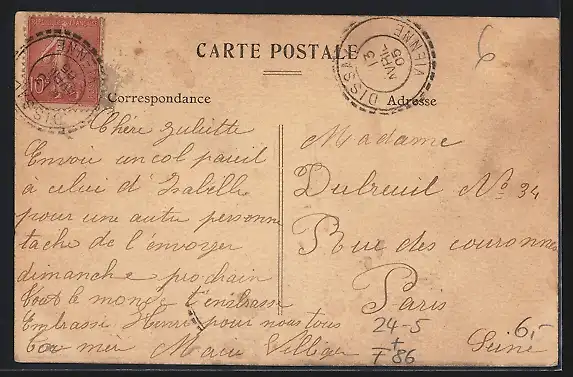 CARTE POSTALE
6
Correspondance
Adresse
DISSAY VIENNE
13 AVRIL 05
Chère Juliette
Envoie un col pareil
à celui d'Isabelle
pour une autre personne
tache de l'envoyer
dimanche prochain
tout le monde t'embrasse
Embrasse Henri pour nous tous
ta mère Marie
Madame
Dubreuil No 34
Rue des couronnes
Paris
Seine
24-5
+
T 86
6,-